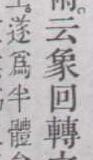 雨。云象回轉
遂爲半體